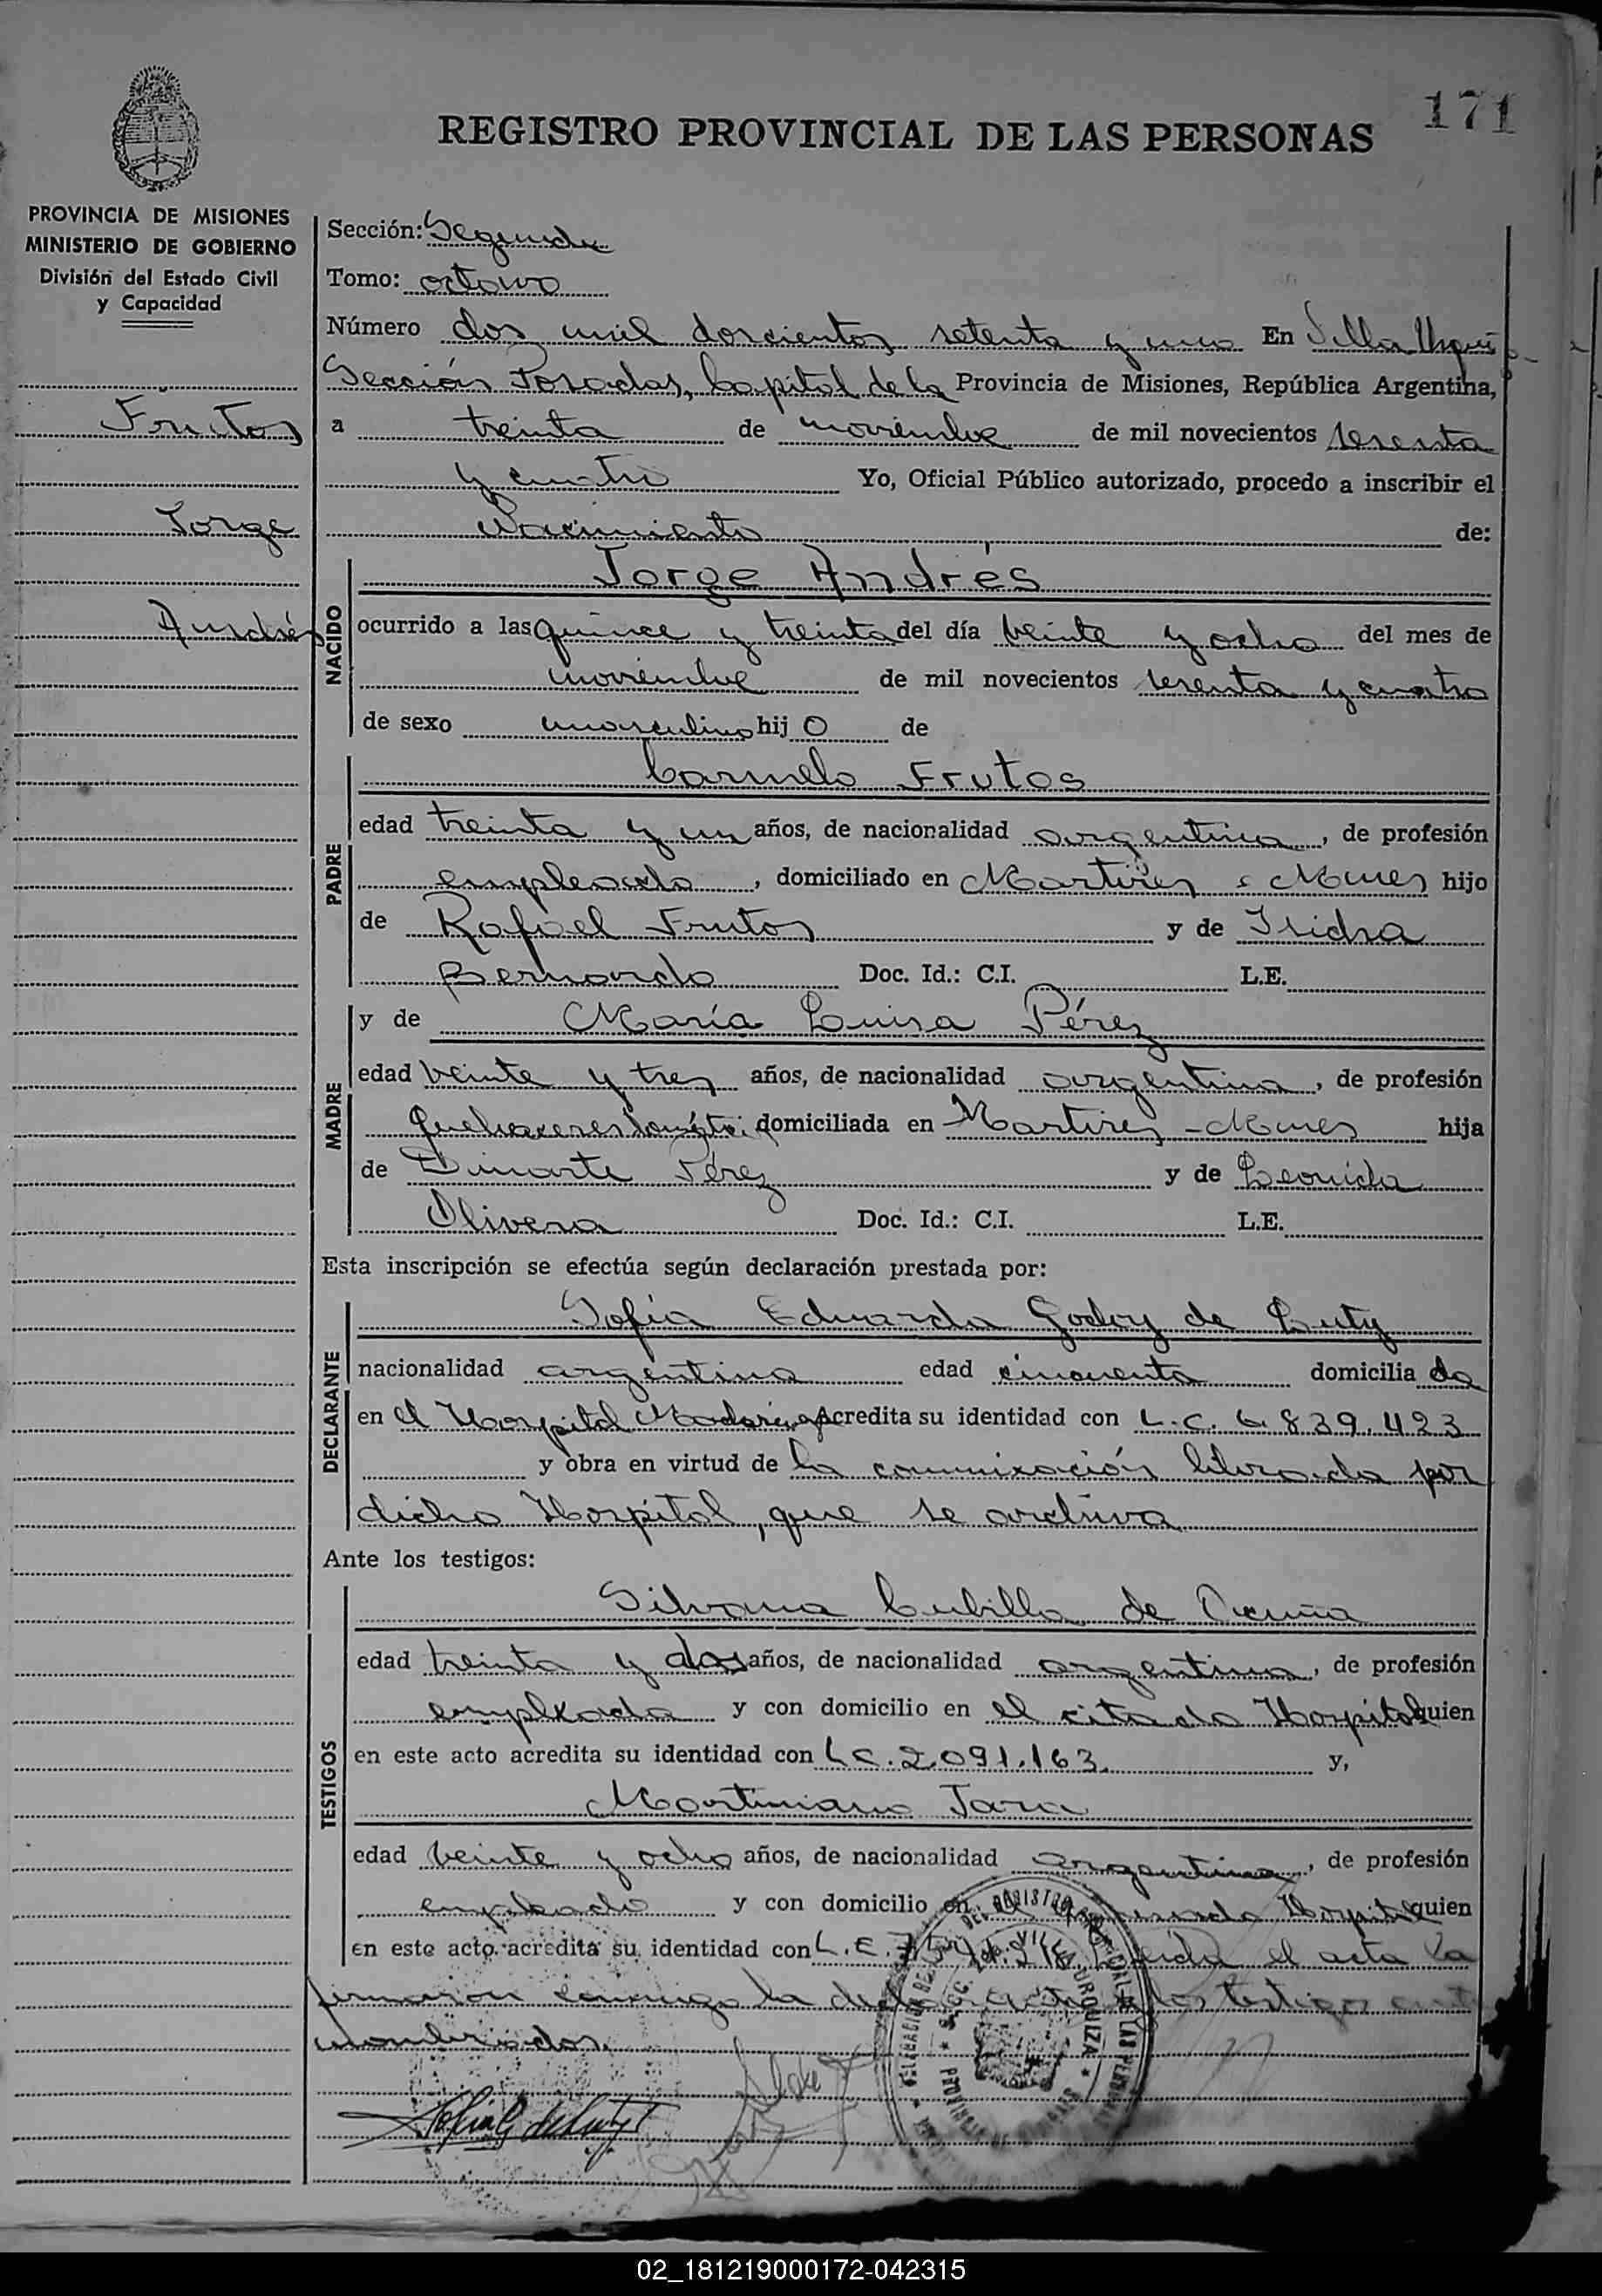 171
REGISTRO PROVINCIAL DE LAS PERSONAS
PROVINCIA DE MISIONES
MINISTERIO DE GOBIERNO
División del Estado Civil
y Capacidad
Frutos
Jorge
Andrés
Sección: Segunda
Tomo: octavo
Número dos mil doscientos setenta y uno En Villa Urqui
Sección Posadas, Capital de la Provincia de Misiones, República Argentina,
a treinta de noviembre de mil novecientos sesenta
y cuatro Yo, Oficial Público autorizado, procedo a inscribir el
Nacimiento de:
NACIDO
Jorge Andrés
ocurrido a las quince y treinta del día veinte y ocho del mes de
noviembre de mil novecientos sesenta y cuatro
de sexo masculino hij o de
PADRE
Carmelo Frutos
edad treinta y un años, de nacionalidad argentina, de profesión
empleado, domiciliado en Martires - Mnes hijo
de Rafael Frutos y de Isidra
Bernardo Doc. Id.: C.I. L.E.
MADRE
y de María Luisa Pérez
edad veinte y tres años, de nacionalidad argentina, de profesión
quehaceres domiciliada en Martires - Mnes hija
de Duarte Pérez y de Leonida
Olivera Doc. Id.: C.I. L.E.
Esta inscripción se efectúa según declaración prestada por:
DECLARANTE
Sofia Eduarda Godoy de Luty
nacionalidad argentina edad cincuenta domicilia da
en el Hospital Madariaga Acredita su identidad con L.C. 6.839.423
y obra en virtud de la comunicación librada por
dicho Hospital, que se archiva
Ante los testigos:
TESTIGOS
Silvana Cubilla de Acuña
edad treinta y dos años, de nacionalidad argentina, de profesión
empleada y con domicilio en el citado Hospital quien
en este acto acredita su identidad con L.C. 2.091.163. y,
Martiniano Jara
edad veinte y ocho años, de nacionalidad argentina, de profesión
empleado y con domicilio en el Hospital quien
en este acto acredita su identidad con L.E. 7. Leida el acta la
firmaron conmigo la declarante y los testigos
nombrados.
Sofia G de Luty
VILLA URQUIZA
02_181219000172-042315